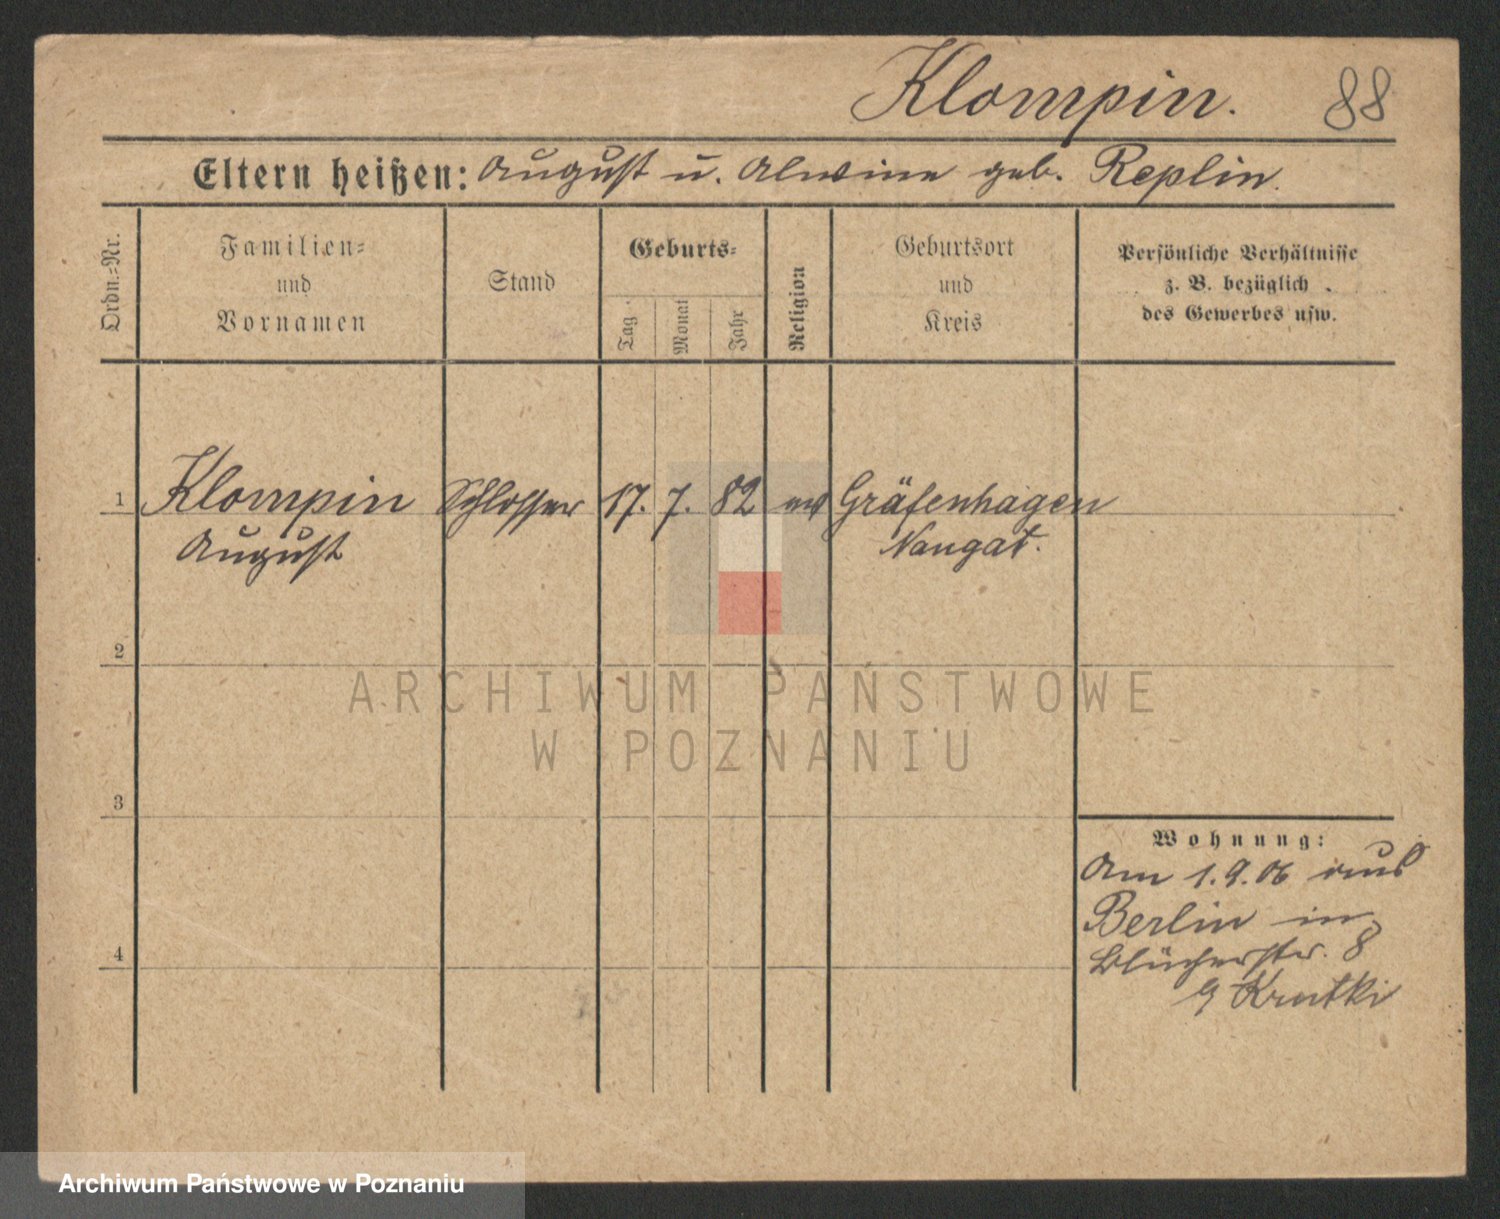 Klompin.
88
Eltern heißen: August u. Alwine geb. Replin.
Ordn.-Nr.
Familien-
und
Vornamen
Stand
Geburts-
Tag
Monat
Jahr
Religion
Geburtsort
und
Kreis
Persönliche Verhältnisse
z. B. bezüglich
des Gewerbes usw.
1 Klompin Schlosser 17. 7. 82 ev Gräfenhagen
August Naugat.
2
ARCHIWUM PAŃSTWOWE
W POZNANIU
3
Wohnung:
Am 1.9.06 aus
Berlin in
Blücherstr. 8
4
Krutki
Archiwum Państwowe w Poznaniu